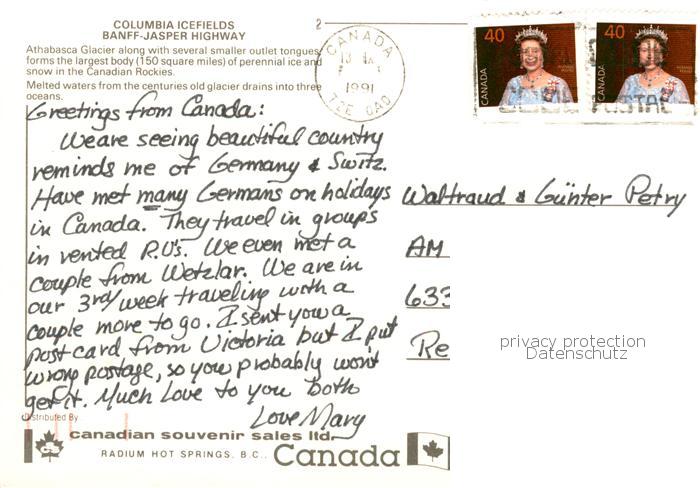 COLUMBIA ICEFIELDS
BANFF-JASPER HIGHWAY
Athabasca Glacier along with several smaller outlet tongues
forms the largest body (150 square miles) of perennial ice and
snow in the Canadian Rockies.
Melted waters from the centuries old glacier drains into three
oceans.
2
CANADA
1991
T2E 0A0
40
CANADA
40
CANADA
POSTAL
Greetings from Canada:
We are seeing beautiful country
reminds me of Germany & Switz.
Have met many Germans on holidays
in Canada. They travel in groups
in vented R.V's. We even met a
couple from Wetzlar. We are in
our 3rd week traveling with a
couple more to go. I sent you a
post card from Victoria but I put
wrong postage, so you probably won't
get it. Much Love to you both
Love Mary
Waltraud & Günter Petry
AM
633
Re
privacy protection
Datenschutz
Distributed By
canadian souvenir sales ltd.
RADIUM HOT SPRINGS, B.C..
Canada